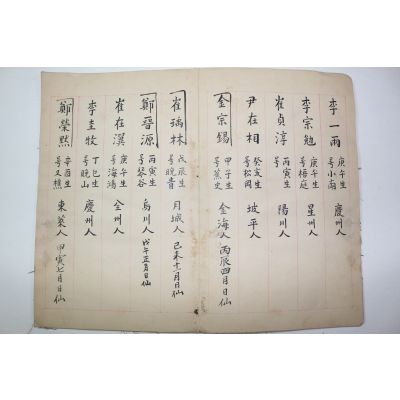 李一雨 庚午生 号小南 慶州人
李宗勉 庚午生 号梧庭 星州人
崔貞淳 丙寅生 陽川人
尹在相 癸亥生 号松岡 坡平人
金宗錫 甲子生 号蕉史 金海人 丙辰四月日仙
崔瑀林 戊辰生 号晩青 月城人 己未十一月日仙
鄭晉源 丙寅生 号琴谷 烏川人 戊午正月日仙
崔在漢 庚午生 号海鴻 全州人
李圭牧 丁巳生 号晩山 慶州人
鄭榮黙 辛酉生 号又樵 東萊人 甲寅七月日仙